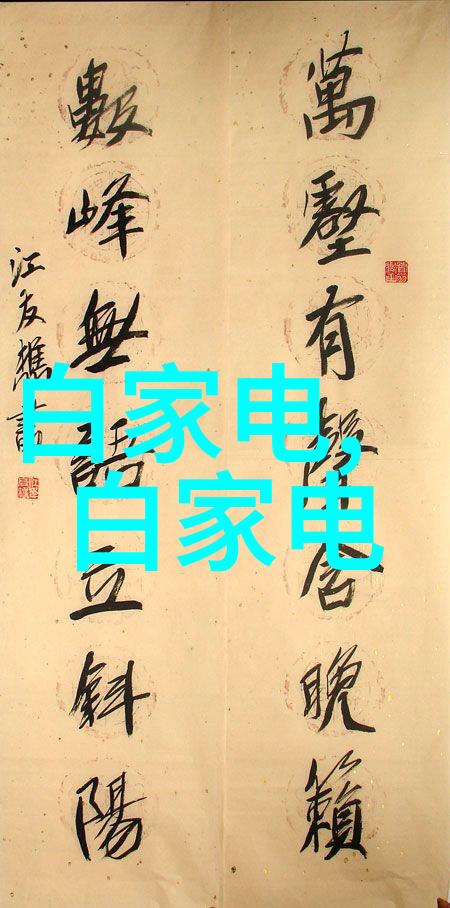 萬壑有聲含晚籟
數峰無語立斜陽
江友樵書
白家电,
白家电